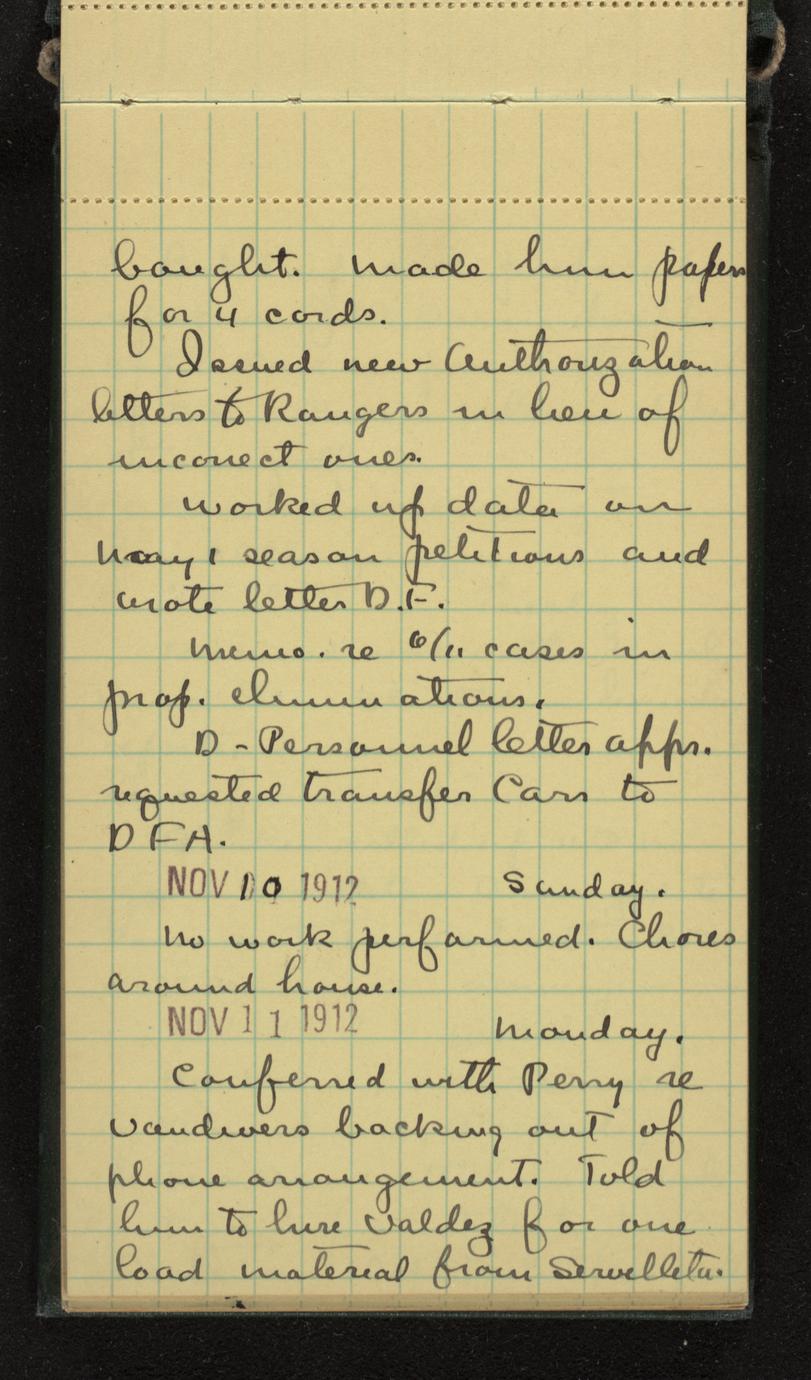 bought. Made him papers
for 4 cords.
Issued new Authorization
letters to Rangers in lieu of
incorrect ones.
Worked up data on
May 1 season petitions and
wrote letter D.F.
Memo. re 6/11 cases in
prop. eliminations.
D - Personnel letter appr.
requested transfer Carr to
DFA.
NOV 10 1912 Sunday.
No work performed. Chores
around house.
NOV 11 1912 Monday.
Conferred with Perry re
Vandivers backing out of
phone arrangement. Told
him to hire Valdez for one
load material from Servilleta.